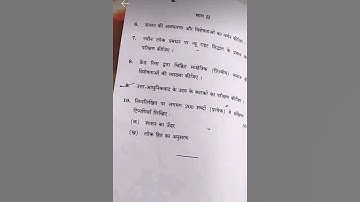 भाग II
6. शासन की अवधारणा और विशेषताओं का वर्णन कीजिए।
7. नवीन लोक प्रबंधन पर न्यू राइट सिद्धांत के प्रभाव का
परीक्षण कीजिए।
8. फ्रेड रिग्स द्वारा चिह्नित समाज की
विशेषताओं की व्याख्या कीजिए।
9. उत्तर-आधुनिकवाद के उदय के कारकों का परीक्षण कीजिए।
10. निम्नलिखित पर लगभग 200 शब्दों (प्रत्येक) में संक्षिप्त
टिप्पणियाँ लिखिए:
(क) का जेंडर
(ख) लोक हित का अनुसरण